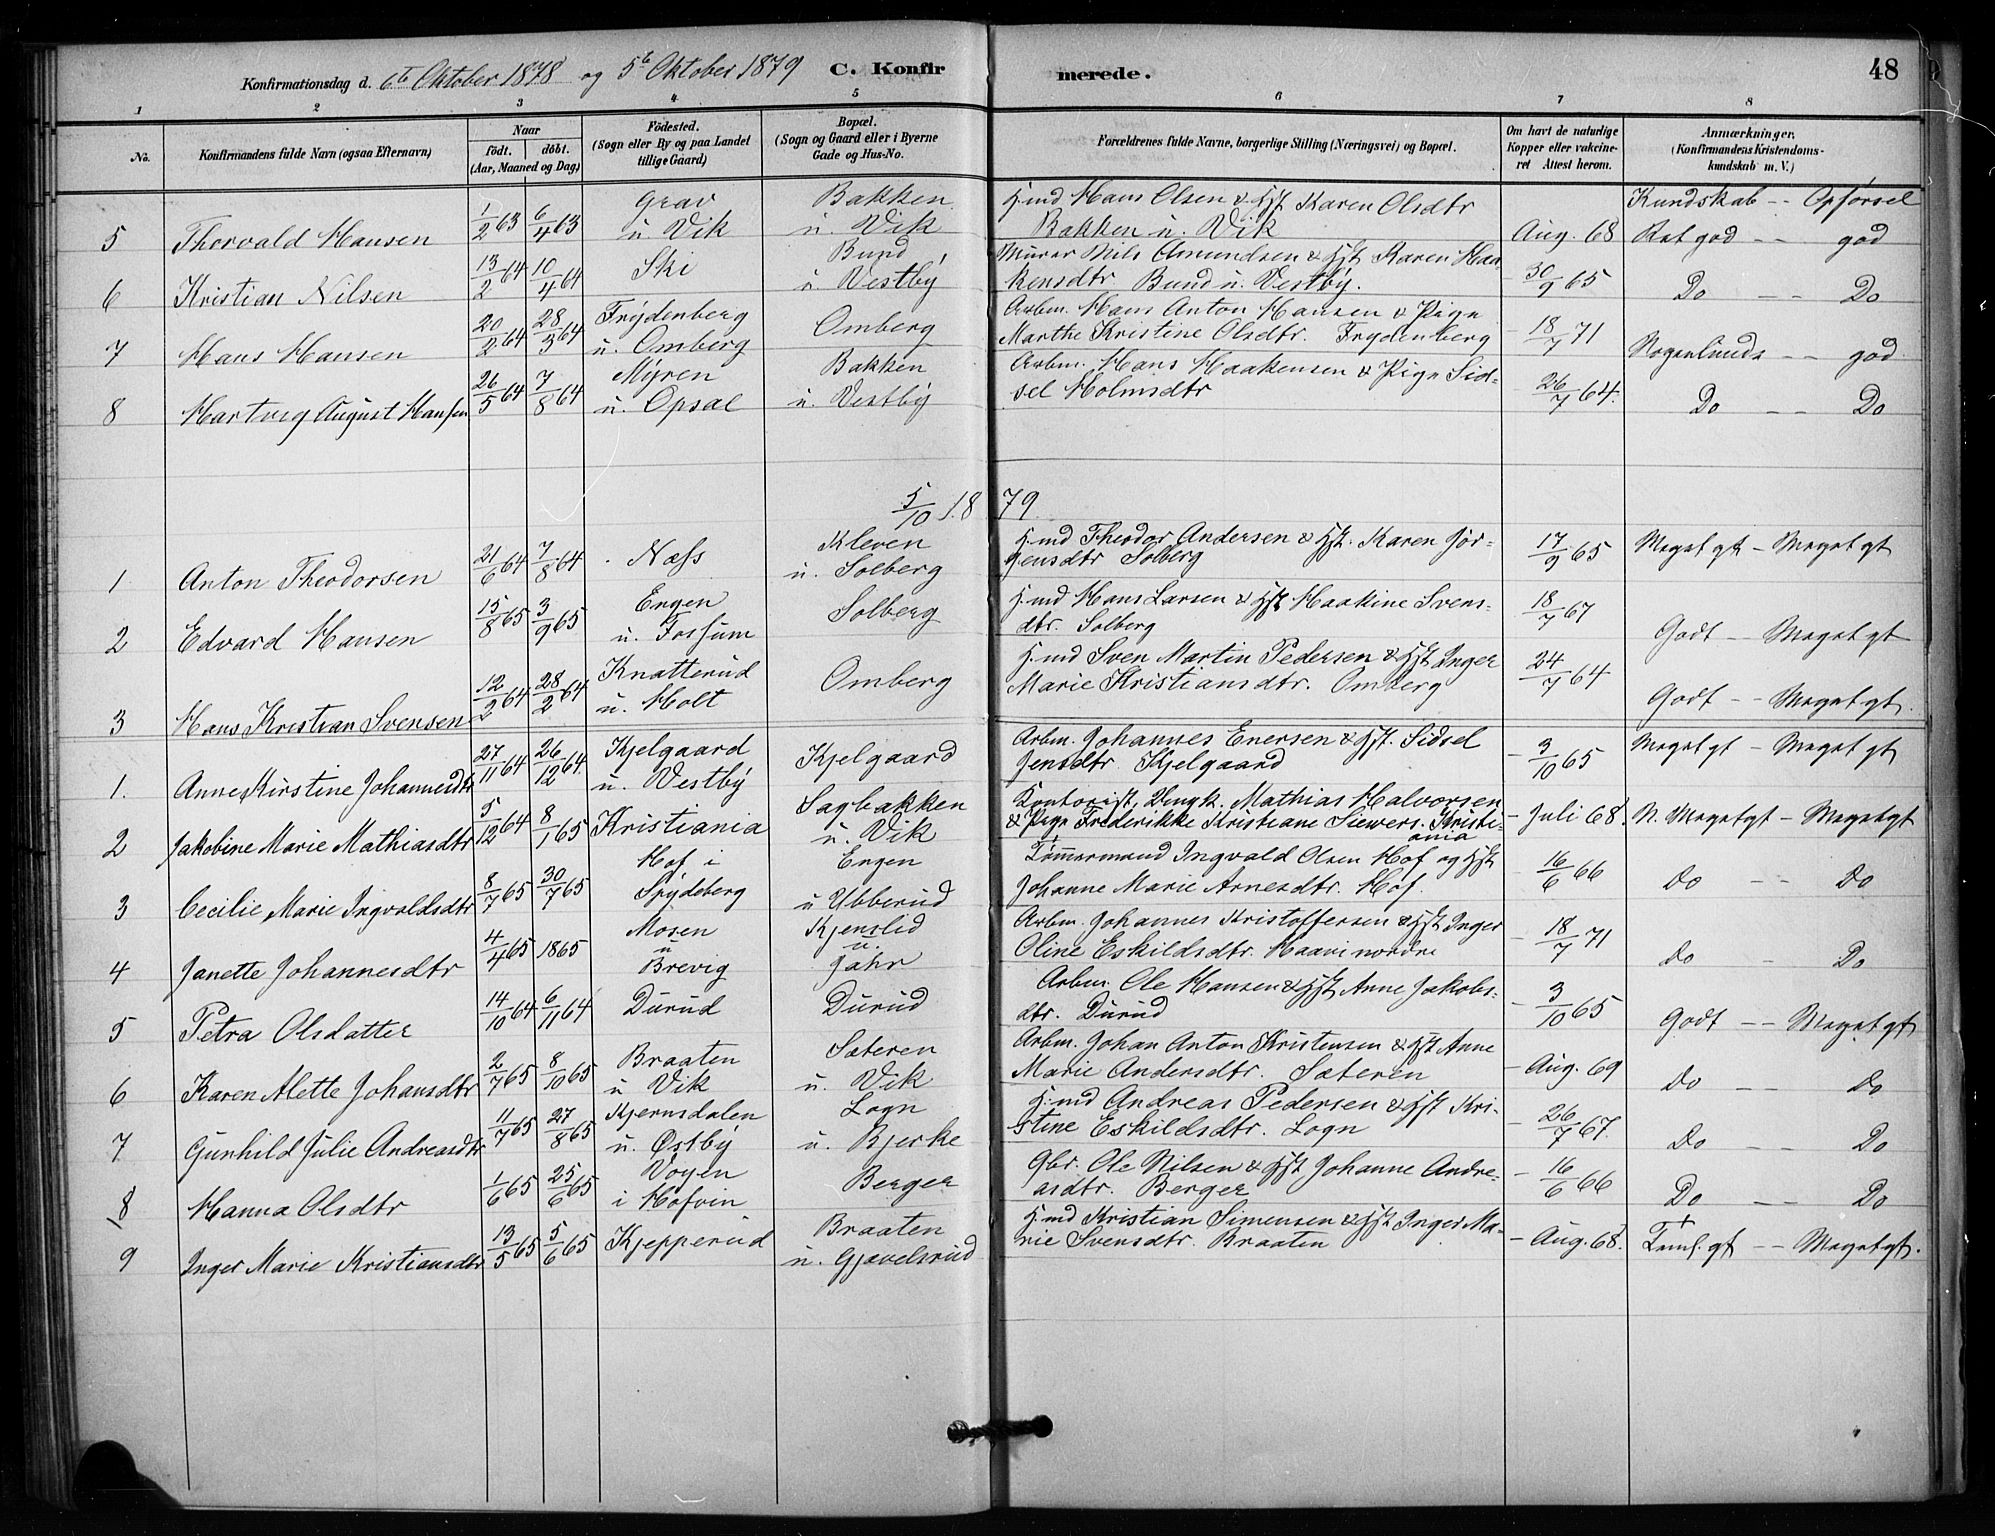 Konfirmationsdag d. 6te Oktober 1878 og 5te Oktober 1879 C. Konfirmerede. 48
1 2 3 4 5 6 7 8
No. Konfirmandens fulde Navn (ogsaa Efternavn) Naar født. døbt. (Aar, Maaned og Dag) Födested. (Sogn eller By og paa Landet tillige Gaard) Bopæl. (Sogn og Gaard eller i Byerne Gade og Hus-No. Forældrenes fulde Navne, borgerlige Stilling (Næringsvei) og Bopæl. Om havt de naturlige Kopper eller vakcineret Attest herom. Anmærkninger. (Konfirmandens Kristendomskundskab m. V.)
Kundskab -- Opførsel
5 Thorvald Hansen 1/2 63 6/4 63 Grav u. Vik Bakken u. Vik Hmd Hans Olsen & Hst Karen Olsdtr
Bakken u. Vik Aug. 68 Ret god -- god
6 Kristian Nilsen 13/2 64 10/4 64 Ski Bund u Vestby Murer Nils Amundsen & Hst Karen Haa-
kensdtr Bund u. Vestby. 30/9 65 Do -- Do
7 Hans Hansen 20/2 64 28/3 64 Frydenberg u. Omberg Omberg Arbm. Hans Anton Hansen & Pige
Marthe Kristine Olsdtr. Frydenberg 18/7 71 Nogenlunde -- god
8 Hartvig August Hansen 26/5 64 7/8 64 Myren u. Opsal Bakken u. Vestby Arbm. Hans Haakensen & Pige Sid-
sel Holmsdtr 26/7 64. Do -- Do
5/10 1879
1 Anton Theodorsen 21/6 64 7/8 64 Næss Kleven u. Solberg Hmd Theodor Andersen & Hst. Karen Jør-
gensdtr Solberg 17/9 65 Meget gt - Meget gt
2 Edvard Hansen 15/8 65 3/9 65 Engen u. Fossum Solberg Hmd Hans Larsen & Hst Haakine Svens-
dtr. Solberg 18/7 67 Godt -- Meget gt
3 Hans Kristian Svensen 12/2 64 28/2 64 Knatterud u. Holt Omberg Hmd Sven Martin Pedersen & Hst Inger
Marie Kristiansdtr. Omberg 24/7 64 Godt -- Meget gt.
1. Anne Kirstine Johannesdtr 27/11 64 26/12 64. Kjelgaard u. Vestby Kjelgaard Arbm. Johannes Enersen & Hst. Sidsel
Jensdtr. Kjelgaard 3/10 65 Meget gt - Meget gt
2 Jakobine Marie Mathiasdtr 5/12 64 8/1 65 Kristiania Sagbakken u. Vik Kontorist, Ungk. Mathias Halvorsen
& Pige Frederikke Kristiane Siewers. Kristi-
ania Juli 68. N. Meget gt - Meget gt
3 Cecilie Marie Ingvaldsdtr 8/7 65 30/7 65 Hof i Spydeberg Engen u Ubberud Tømmermand Ingvald Olsen Hof og Hst
Johanne Marie Arnesdtr. Hof. 16/6 66 Do -- Do
4 Janette Johannesdtr 4/4 65 1865 Mosen u Brevig Kjenslid u. Jahr Arbm. Johannes Kristoffersen & Hst Inger
Oline Eskildsdtr. Haavi nordre 18/7 71 Do - Do
5 Petra Olsdatter 14/10 64 6/11 64 Durud Durud Arbm. Ole Hansen & Hst Anne Jakobs-
dtr. Durud 3/10 65 Godt -- Meget gt
6 Karen Alette Johansdtr 2/7 65 8/10 65 Braaten u Vik Sæteren u. Vik Arbm. Johan Anton Kristensen & Hst Anne
Marie Andersdtr. Sæteren Aug. 69 Do -- Do
7 Gunhild Julie Andreasdtr 11/7 65 27/8 65 Kjernsdalen u. Østby Logn u. Bjerke Hmd Andreas Pedersen & Hst Kri-
stine Eskildsdtr. Logn 26/7 67. Do -- Do
8 Hanna Olsdtr 1/6 65 25/6 65 Vøyen i Hofvin Berger Gbr. Ole Nilsen & Hst Johanne Andre-
asdtr. Berger 16/6 66 Do -- Do
9 Inger Marie Kristiansdtr 13/5 65 5/6 65 Kjepperud Braaten u. Gjavelsrud Hmd Kristian Simensen & Hst Inger Ma-
rie Svensdtr. Braaten Aug. 68. Teml. gt -- Meget gt.